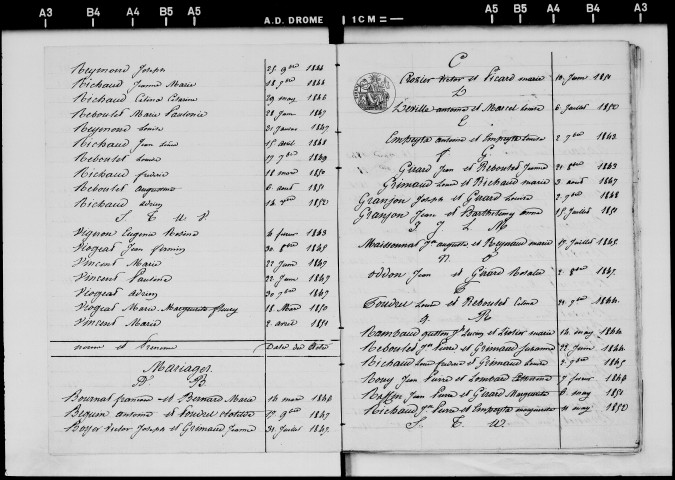 A3 B4 A4 B5 A5 A.D. DROME 1CM= A5 B5 A4 B4 A3
Reymond Joseph 25 9bre 1844
Richaud Jeanne Marie 18 1844
Richaud Célina 29 may 1846
Reboulet Marie Pauline 28 Juin 1847
Reymond Louise 31 1847
Richaud Jean Louis 15 avril 1848
Reboulet Louise 17 7bre 1849
Richaud frédéric 18 mars 1850
Reboulet augustine 6 août 1851
Richaud adrien 14 7bre 1852
S T U V
Vignon Eugenie Rosine 4 fevrier 1843
Viogeat Jean firmin 30 1845
Vincent Marie 22 Juin 1847
Vincent Pauline 22 Juin 1847
Viogeat adrien 30 7bre 1847
Viogeat Marie Marguerite 18 Mars 1850
Vincent Marie 2 avril 1851
noms et Prénoms Date des Actes
Mariages
B
Bournat francois et Bernard Marie 14 mars 1846
Beguin antoine et 17 9bre 1847
Boyer victor Joseph et Grimaud Jeanne 31 Juillet 1847
C
Rozier victor et Picard marie 10 Juin 1851
D
Deville antoine et Marcel Louise 6 Juillet 1850
E
Empeyta antoine et Empeyta Louise 2 7bre 1842
F G
Girard Jean et Reboulet Jeanne 21 8bre 1843
Grimaud Louis et Richaud marie 3 août 1847
Granjon Joseph et Girard Louise 2 7bre 1848
Granjon Jean et Barthelemy anne 15 Juillet 1851
I J L M
Maisonnat auguste et Reynaud marie 17 Juillet 1845
N O
oddon Jean et Girard Rosalie 2 8bre 1847
Louis et Reboulet 21 7bre 1844
Q R
Rambaud et marie 14 may 1844
Reboulet Jn Pierre et Grimaud Susanne 22 Juin 1844
Richaud Louis frédéric et Grimaud Louise 2 7bre 1845
Rouy Jean Pierre et Lombard 7 fevrier 1846
Jean Pierre et Girard Marguerite 6 may 1851
Richaud Jn Pierre et Empeyta marguerite 11 may 1852
S T U